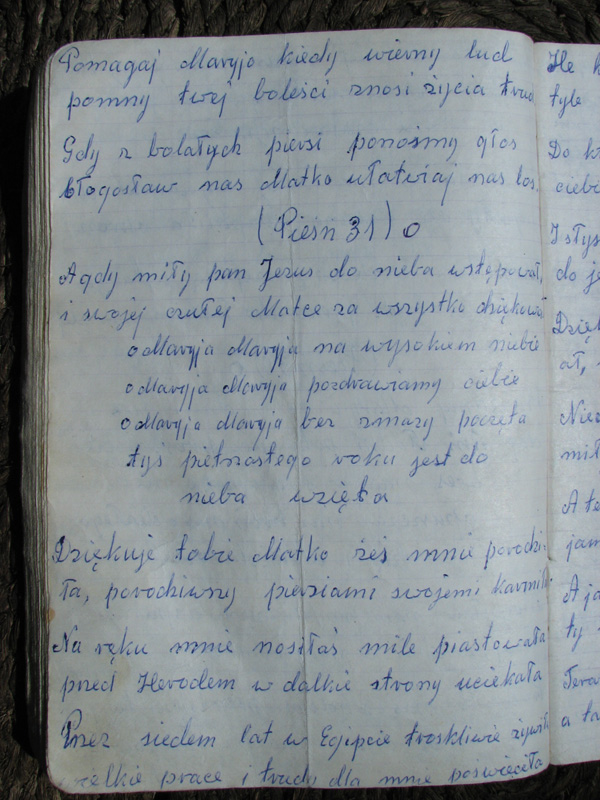 Pomagaj Maryjo kiedy wierny lud
pomny twej boleści znosi życia trud
Gdy z bolałych piersi ponośmy głos
błogosław nas Matko ułatwiaj nas los.
(Pieśń 31) o
A gdy miły pan Jezus do nieba wstępował,
i swojej czułej Matce za wszystko dziękował
o Maryja Maryja na wysokiem niebie
o Maryja Maryja pozdrawiamy ciebie
o Maryja Maryja bez zmazy poczęta
tyś pietnastego roku jest do
nieba wzięta
Dziękuje tobie Matko żeś mnie porodzi-
ła, porodziwszy piersiami swojemi karmiła
Na ręku mnie nosiłaś mile piastowała
przed Herodem w dalkie strony uciekała
Przez siedem lat w Egipcie troskliwie żywiła
wielkie prace i trudy dla mnie poświęciła
Ile
tyle
Do
ciebi
I słys
do je
Dzięk
ał,
Nie
mił
A te
jam
A ja
ty
Tera
a ta